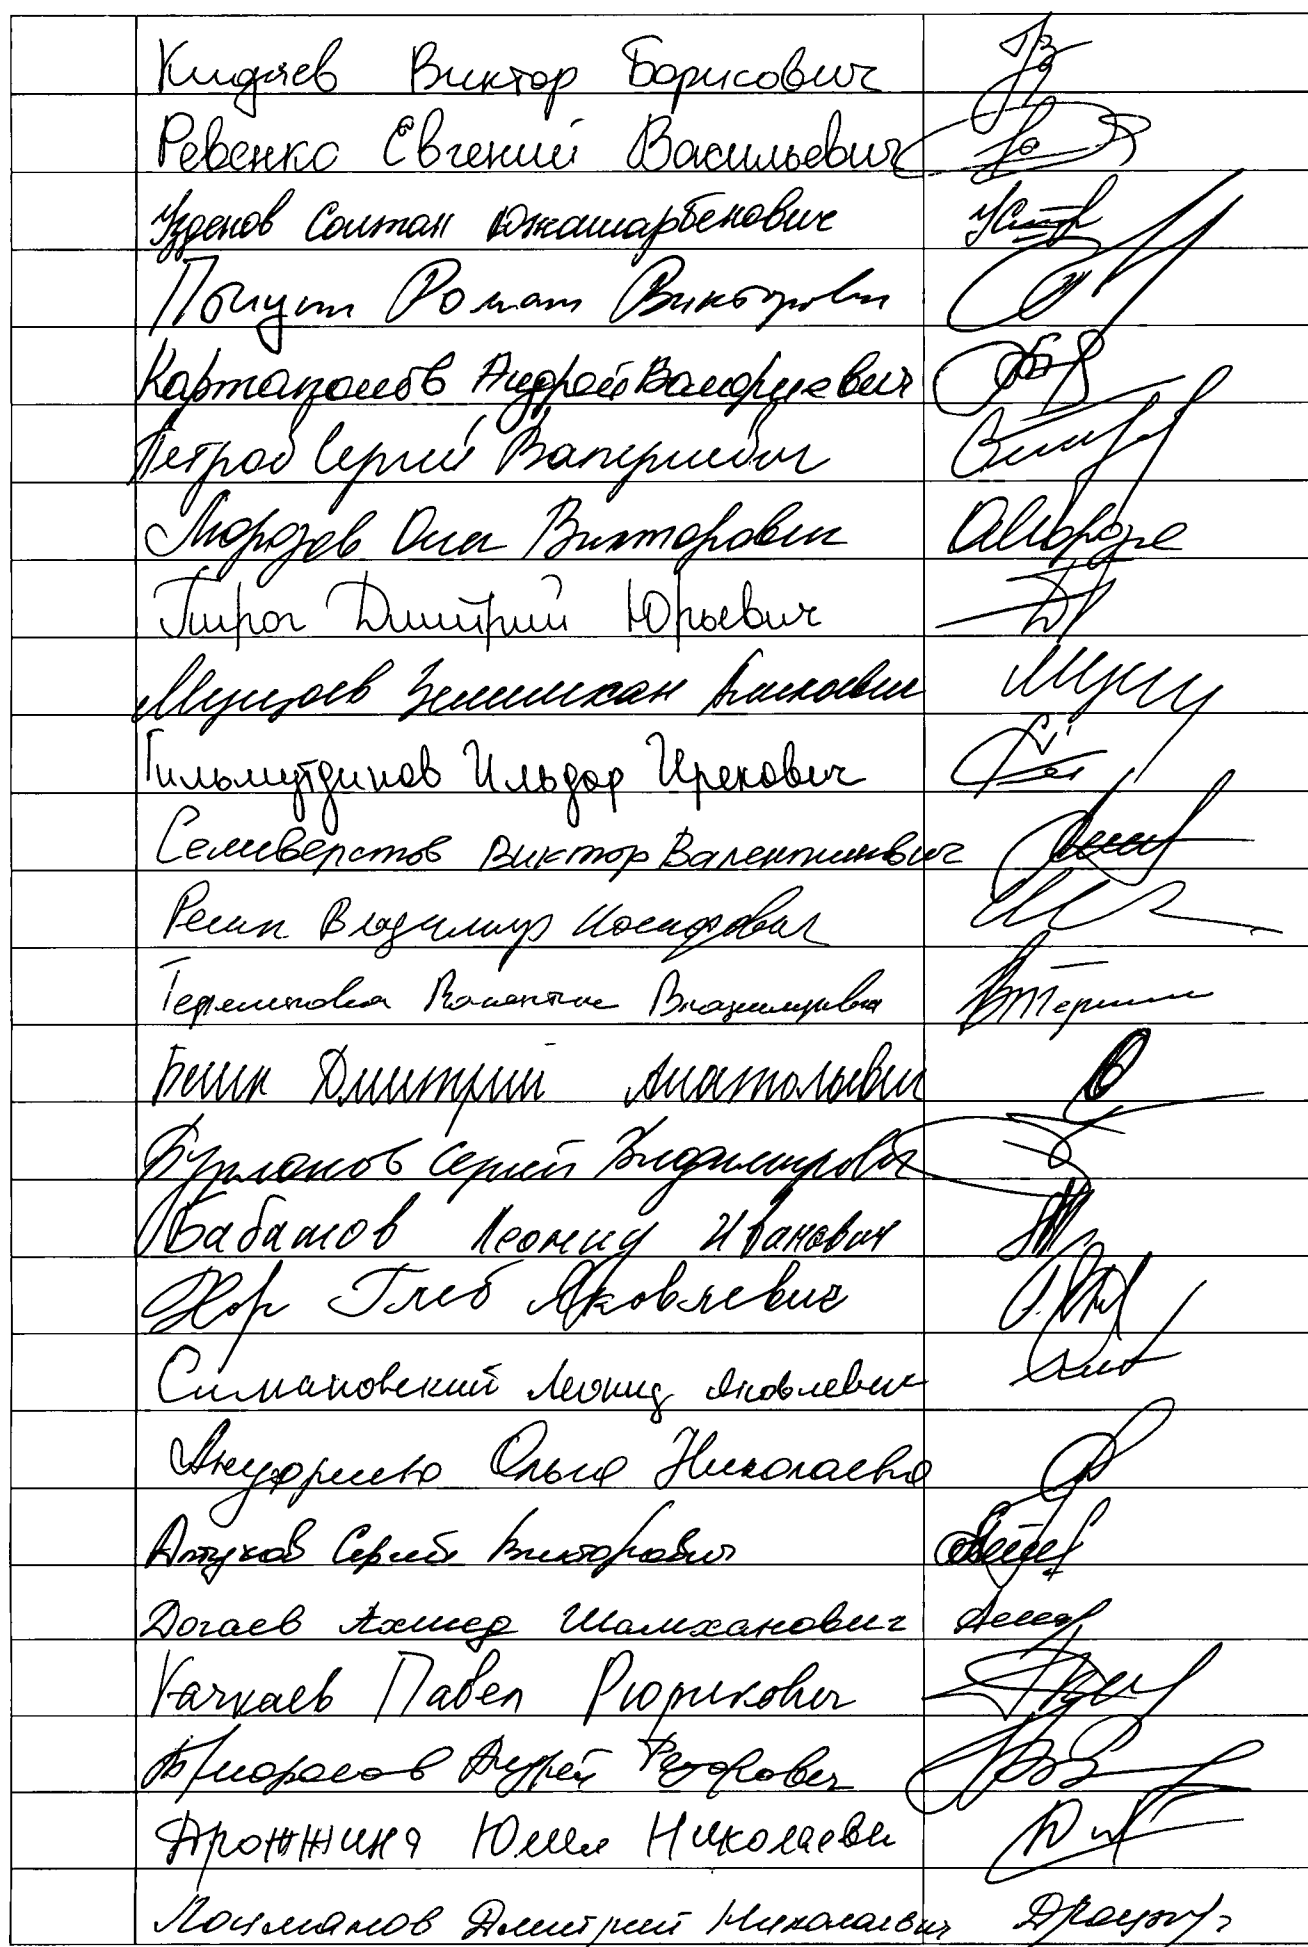 Кидяев Виктор Борисович
Ревенко Евгений Васильевич
Узденов Солтан
Роман Викторович
Картаполов Андрей Валериевич
Петров Сергей Валериевич
Морозов Олег Викторович
Пирог Дмитрий Юрьевич
Муцоев Зелимхан Аликоевич
Гильмутдинов Ильдар Ирекович
Селиверстов Виктор Валентинович
Ресин Владимир Иосифович
Терешкова Валентина Владимировна
Бегин Дмитрий Анатольевич
Бурлаков Сергей Владимирович
Бабашов Леонид Иванович
Хор Глеб Яковлевич
Симановский Леонид Яковлевич
Ануфриева Ольга Николаевна
Алтухов Сергей Викторович
Догаев Ахмед Шамханович
Качкаев Павел Рюрикович
Андрей
Дрожжина Юлия Николаевн
Лоцманов Дмитрий Николаевич